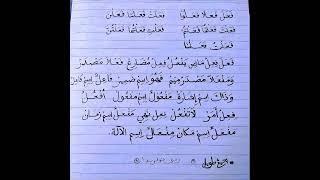 فَعَلَ فَعَلَا فَعَلُوا فَعَلَتْ فَعَلَتَا فَعَلْنَ
فَعَلْتَ فَعَلْتُمَا فَعَلْتُمْ فَعَلْتِ فَعَلْتُمَا فَعَلْتُنَّ
فَعَلْتُ فَعَلْنَا
فَعَلَ فِعِلْ مَاضٍ يَفْعُلُ فِعِلْ مُضَارِعْ فَعْلًا مَصْدَرْ
وَمَفْعَلًا مَصْدَرْ مِيمْ فَهُوَ اِسِمْ ضَمِيرْ فَاعِلٌ اِسِمْ فَاعِلْ
وَذَاكَ اِسِمْ اِشَارَةْ مَفْعُوْلٌ اِسِمْ مَفْعُولْ اُفْعُلْ
فِعِلْ اَمَرْ لَاتَفْعُلْ فِعِلْ نَهِي مَفْعَلٌ اِسِمْ زَمَانْ
مَفْعَلٌ اِسِمْ مَكَانْ مِفْعَلٌ اِسِمْ الآلَةْ.